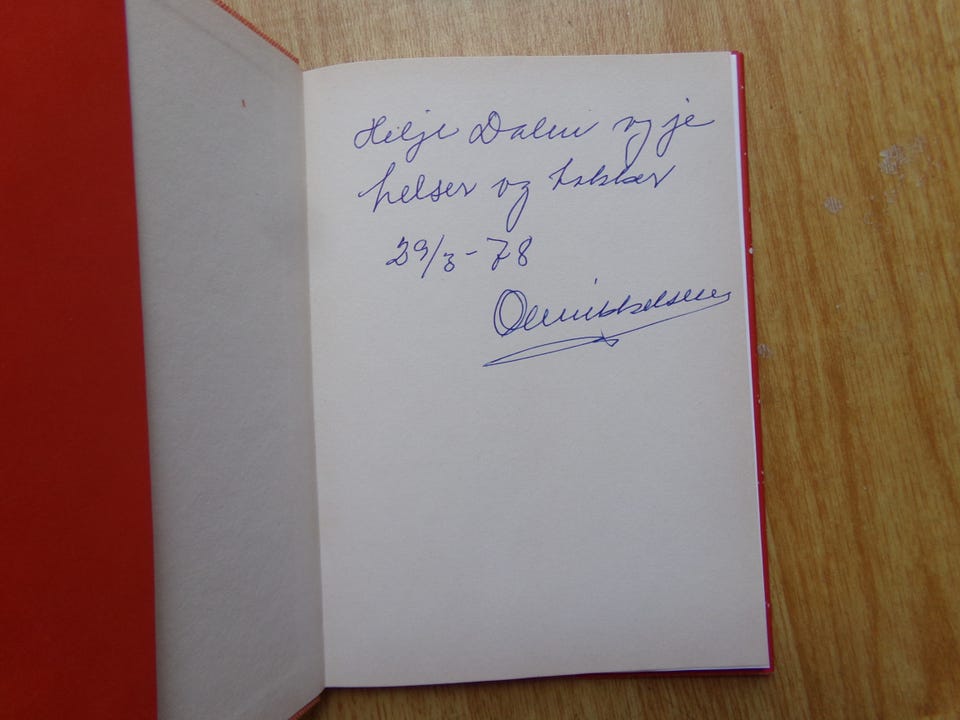 Hilje Dalen og je
helser og takker
29/3-78